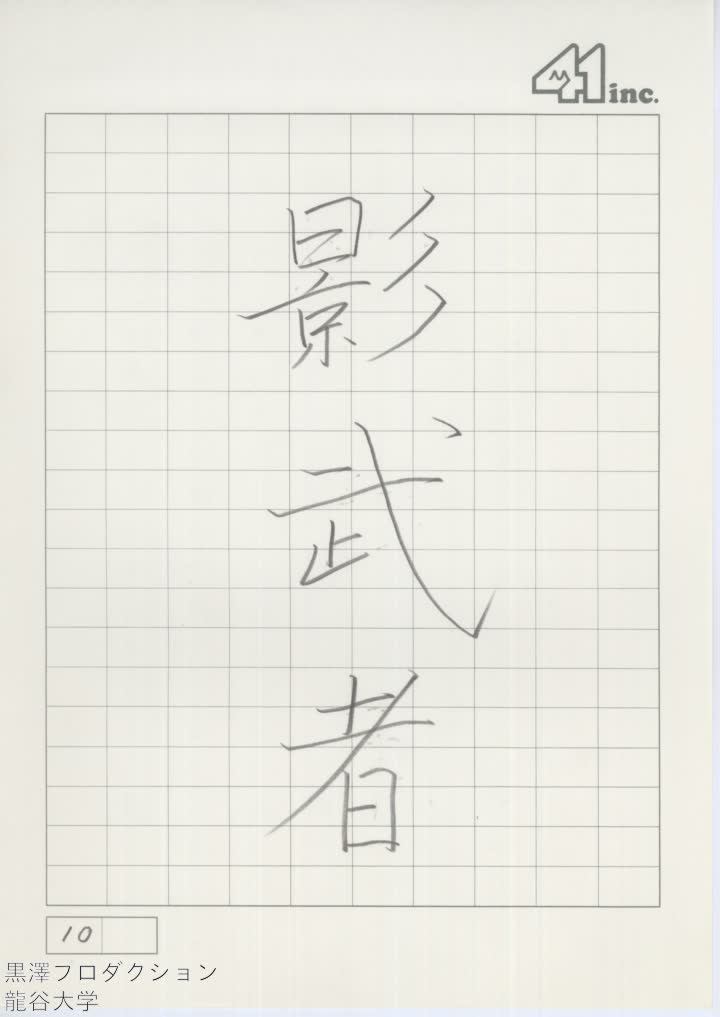 41 inc.
影武者
10
黒澤フロダクション
龍谷大学